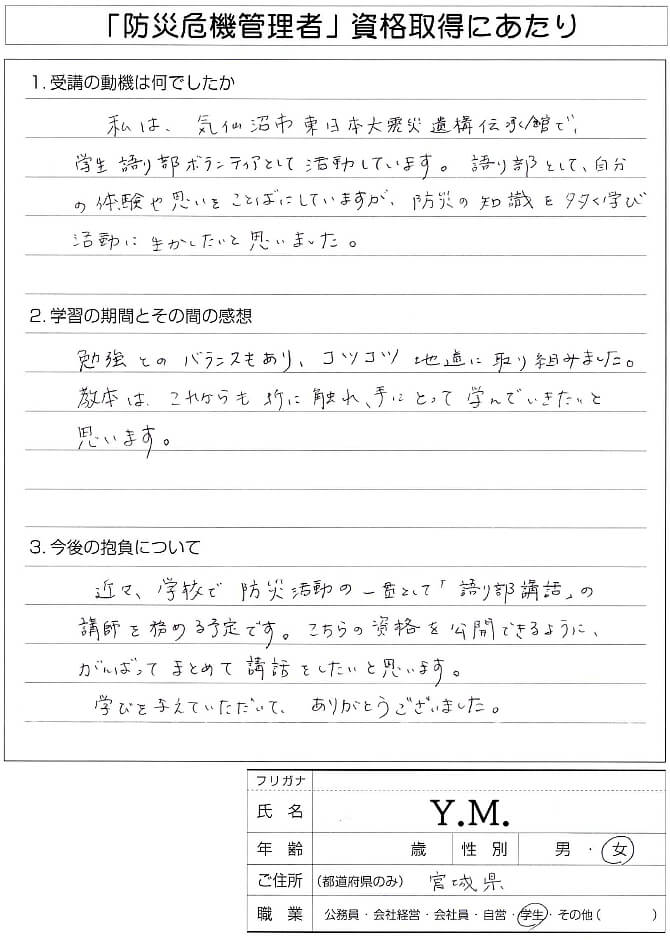 「防災危機管理者」資格取得にあたり
1.受講の動機は何でしたか
私は、気仙沼市東日本大震災遺構伝承館で、
学生語り部ボランティアとして活動しています。語り部として、自分
の体験や思いをことばにしていますが、防災の知識を多く学び
活動に生かしたいと思いました。
2.学習の期間とその間の感想
勉強とのバランスもあり、コツコツ地道に取り組みました。
教本は、これからも折に触れ、手にとって学んでいきたいと
思います。
3.今後の抱負について
近々、学校で防災活動の一環として「語り部講話」の
講師を務める予定です。こちらの資格を公開できるように、
がんばってまとめて講話をしたいと思います。
学びを与えていただいて、ありがとうございました。
フリガナ
氏名 Y.M.
年齢 歳 性別 男・女
ご住所 (都道府県のみ) 宮城県
職業 公務員・会社経営・会社員・自営・学生・その他( )